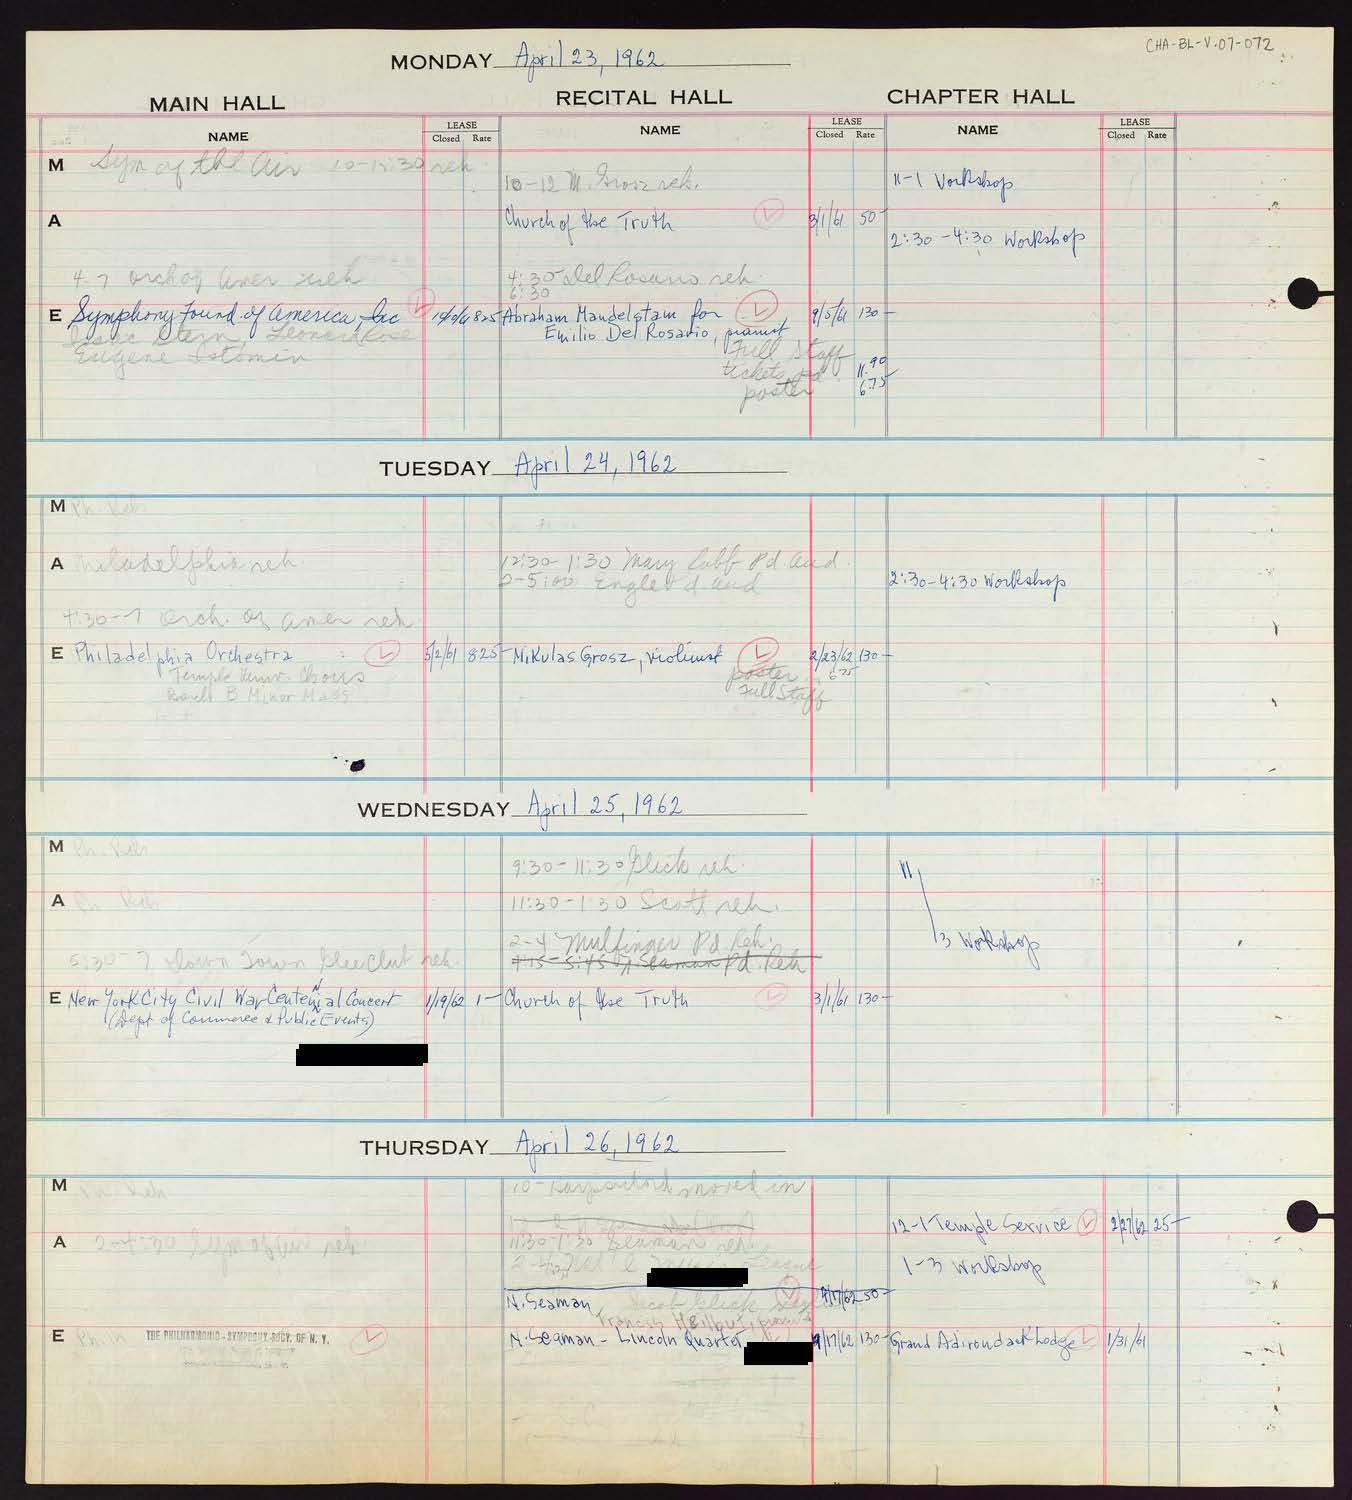 CHA-BL-V.07-072
MONDAY April 23, 1962
MAIN HALL RECITAL HALL CHAPTER HALL
NAME LEASE Closed Rate NAME LEASE Closed Rate NAME LEASE Closed Rate
M Sym of the Air reh
10-12 M. Grosz reh.
11-1 Workshop
A Church of the Truth 3/1/61 50-
2:30-4:30 Workshop
4-7 orch of Amer reh
4:30 Del Rosario reh.
6:30
E Symphony Found. of America, Inc 825- Abraham Mandelstam for 9/5/61 130-
Isaac Stern, Leonard Rose Emilio Del Rosario, pianist
Eugene Istomin Full Staff
tickets 11.90
poster 6.75
TUESDAY April 24, 1962
M Ph. Reh
A Philadelphia reh. 12:30-1:30 Mary Cobb Pd. aud.
2-5:00 Engle Pd. aud
2:30-4:30 Workshop
4:30-7 orch. of Amer reh.
E Philadelphia Orchestra 5/2/61 825- Mikulas Grosz, violinist 2/23/62 130-
Temple Univ. Chorus poster 6.75
Bach B Minor Mass Full Staff
WEDNESDAY April 25, 1962
M Ph. Reh
9:30-11:30 Glick reh.
11
A Ph. Reh 11:30-1:30 Scott reh.
2-4 Mulfinger Pd. Reh.
3 Workshop
5:30-7 Down Town Glee Club reh. 4:15-5:45 N. Seaman Pd. Reh
E New York City Civil War Centennial Concert 1/19/62 1- Church of the Truth 3/1/61 130-
(Dept of Commerce & Public Events)
THURSDAY April 26, 1962
M Ph. Reh 10- Harpsichord moved in
12-1 Temple Service 2/27/62 25-
A 2-4:30 Sym of Air reh. 11:30-1:30 Seaman reh.
League
1-3 Workshop
N. Seaman Jacob Glick 4/17/62 50-
Francis Heilbut, pianist
E THE PHILHARMONIC-SYMPHONY SOCY. OF N. Y. N. Seaman - Lincoln Quartet 130- Grand Adirondack Lodge 1/31/61